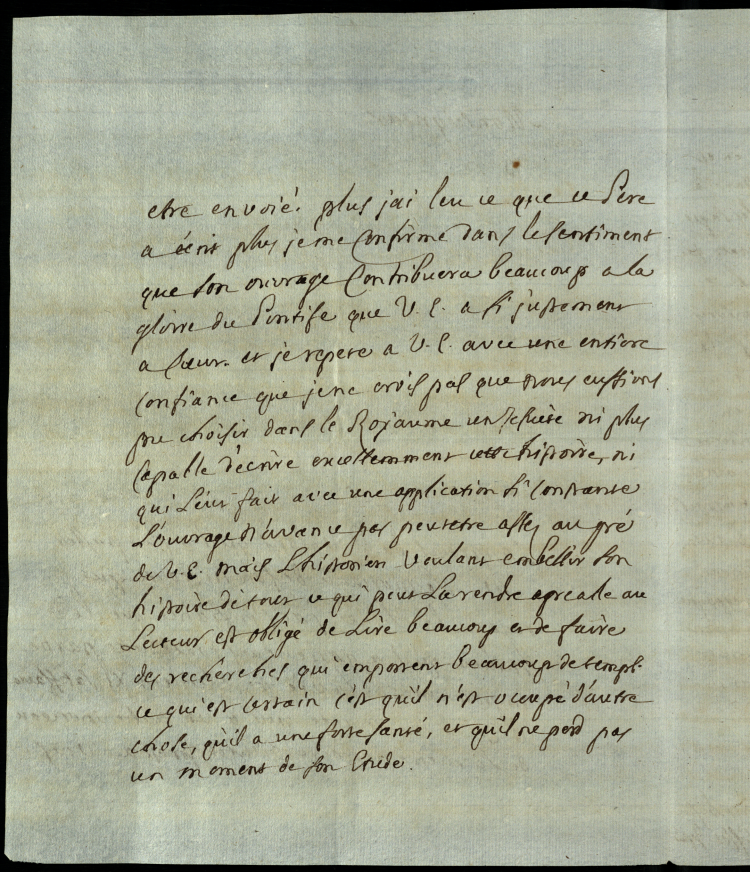 etre envoié. plus j'ai leu ce que ce Pere
a écrit plus je me Confirme dans le sentiment
que son ouvrage Contribuera beaucoup a la
gloire du Pontife que V. E. a si justement
a Cœur. et je repete a V. E. avec une entiere
confiance que je ne crois pas que nous eussions
pu choisir dans le Royaume un sujet ni plus
Capable d'écrire excellemment cette histoire, ni
qui L'eut fait avec une application si constante
L'ouvrage n'avance pas peutetre assez au gré
de V. E. mais L'historien voulant embellir son
histoire de tout ce qui peut La rendre agreable au
Lecteur est obligé de Lire beaucoup et de faire
des recherches qui emportent beaucoup de temps.
ce qui est certain c'est qu'il n'est occupé d'autre
chose, qu'il a une forte santé, et qu'il ne perd pas
un moment de son Etude.